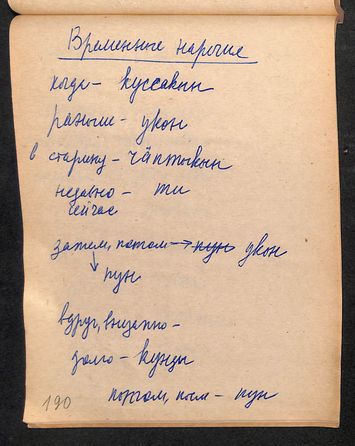 Временные наречие
когда – куссакын
раньше – укон
в старину – чāптыкын
недавно – ти
сейчас
затем, потом → пун укон
↓
пун
вдруг, внезапно –
долго – кунды
потом, посл – пун
190